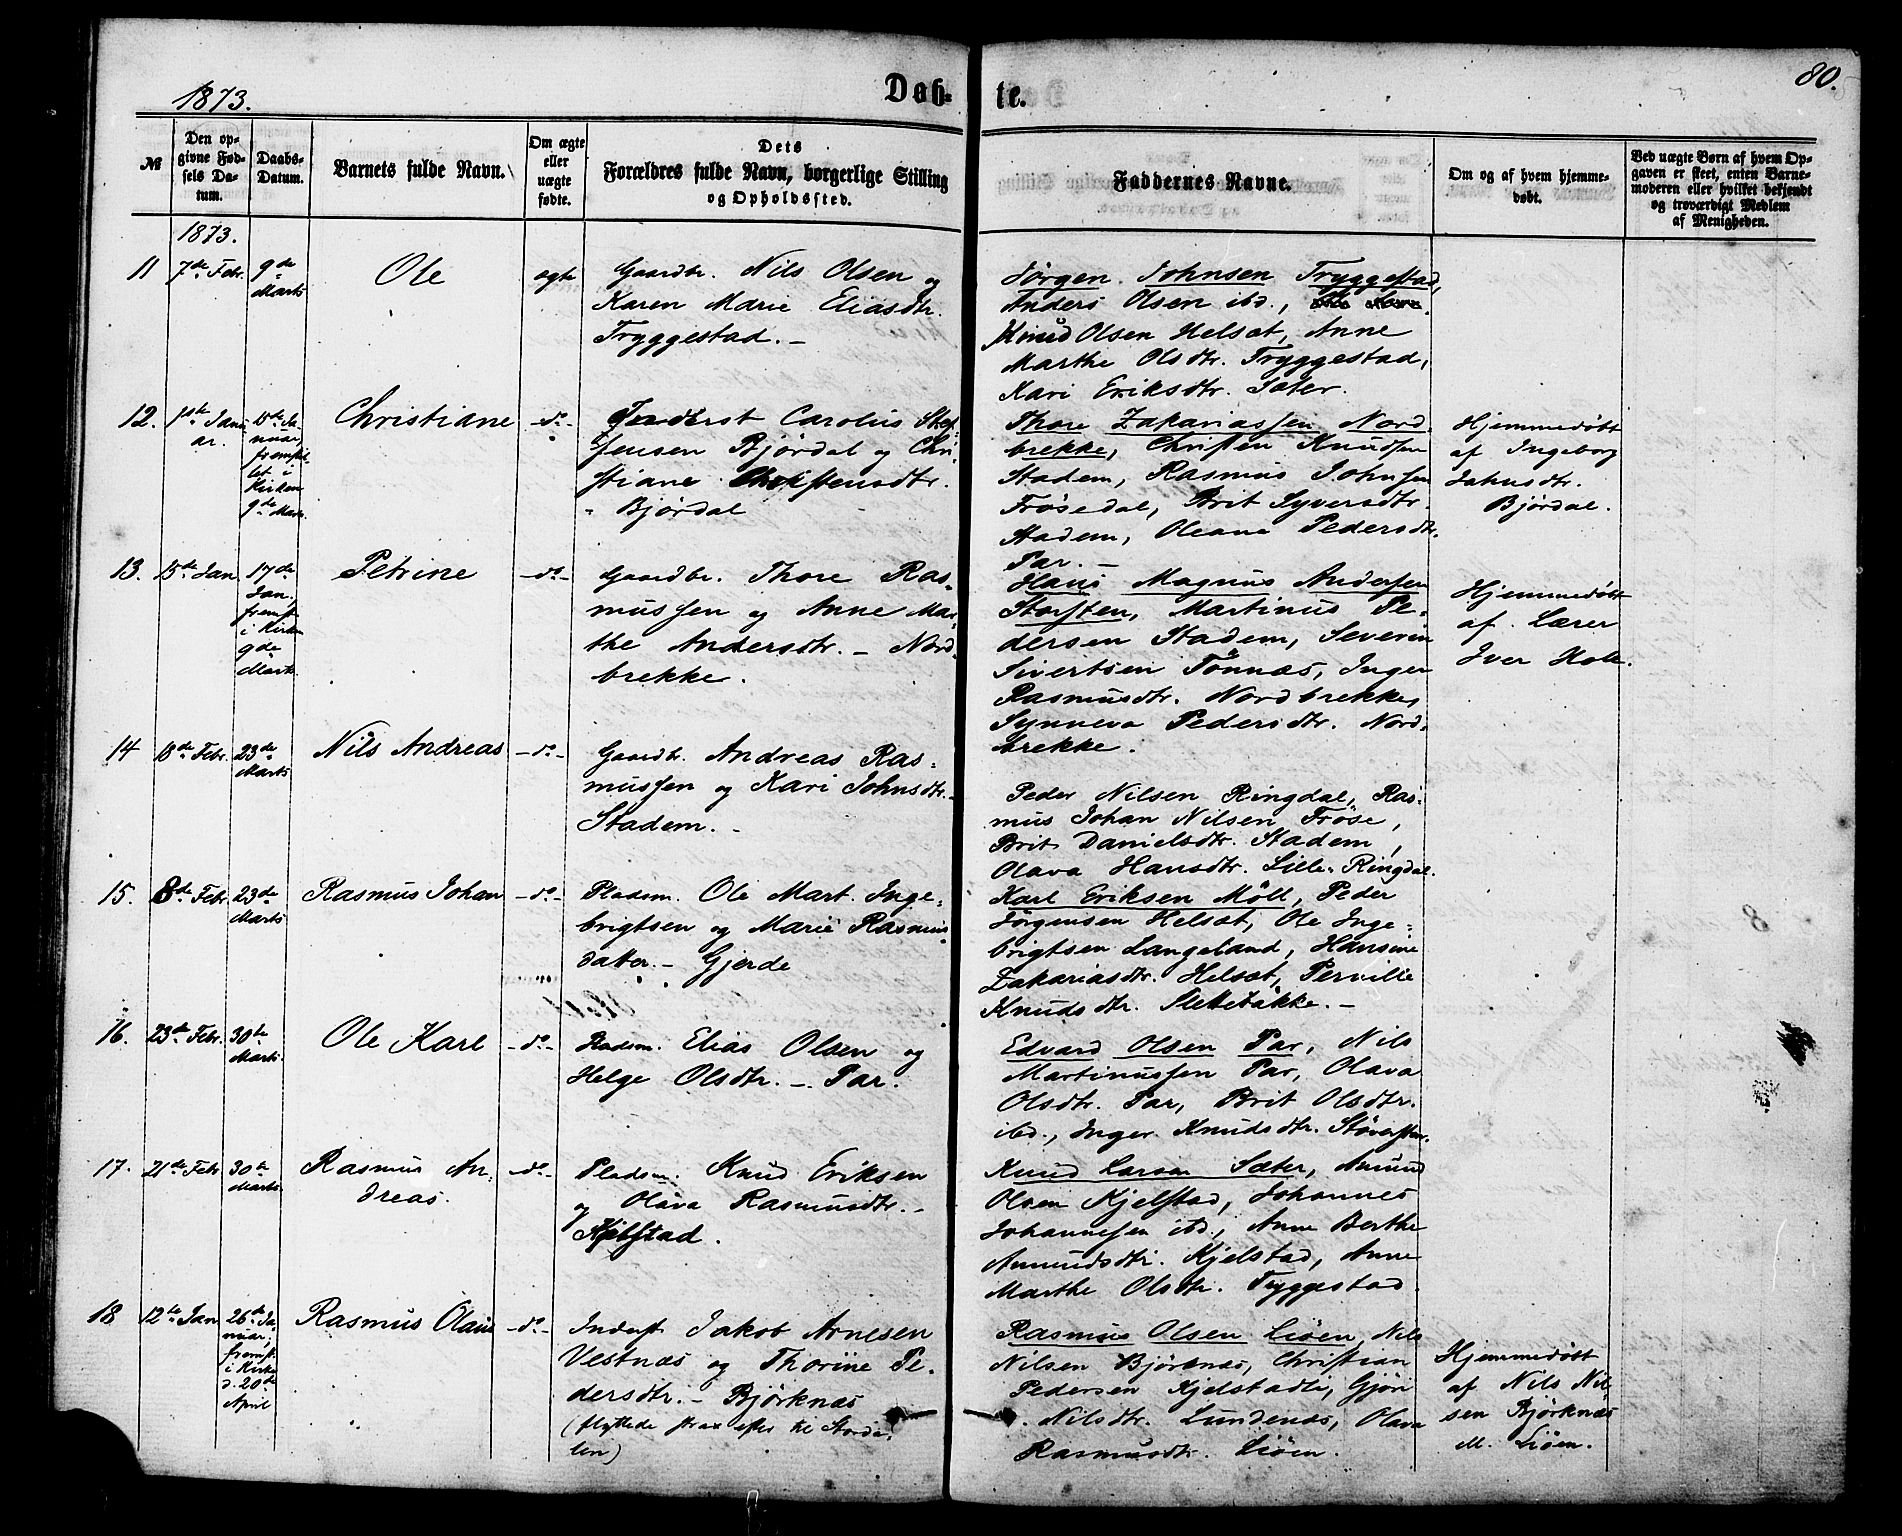 1873.
Daab-
te.
80.
№
Den op-
givne Fød-
sels Da-
tum.
Daabs-
Datum.
Barnets fulde Navn.
Om ægte
eller
uægte
fødte.
Dets
Forældres fulde Navn, borgerlige Stilling
og Opholdssted.
Faddernes Navne.
Om og af hvem hjemme-
døbt.
Ved uægte Børn af hvem Op-
gaven er skeet, enten Barne-
moderen eller hvilket bekjendt
og troværdigt Medlem
af Menigheden.
1873.
11
7de Febr.
9de
Marts
Ole
ægte
Gaardbr. Nils Olsen og
Karen Marie Eliasdtr.
Tryggestad. -
Jørgen Johnsen Tryggestad,
Anders Olsen ibd.,
Knud Olsen Helsæt, Anne
Marthe Olsdtr. Tryggestad,
Kari Eriksdtr. Sæter.
12.
1ste Janu-
ar.
15de Ja-
nuar,
fremstil-
let i
Kirken
9de Marts.
Christiane
-do-
Inderst Carolus Stef-
fensen Bjørdal og Chri-
stiane Christensdtr.
- Bjørdal
Thore Zakariassen Nord-
brekke, Christen Knudsen
Stadem, Rasmus Johnsen
Frøsedal, Brit Syversdtr.
Stadem, Oleane Pedersdtr.
Tar. -
Hjemmedøbt
af Ingeborg
Johnsdtr.
Bjørdal.
13.
15de Jan.
17de
Jan.,
fremst.
i Kirken
9de
Marts.
Petrine
-do-
Gaardbr. Thore Ras-
mussen og Anne Mar-
the Andersdtr. - Nord-
brekke.
Hans Magnus Andersen
Storsten, Martinus Pe-
dersen Stadem, Severin
Sivertsen Tønnæs, Inger
Rasmusdtr. Nordbrekke,
Synneva Pedersdtr. Nord-
brekke.
Hjemmedøbt
af Lærer
Iver Holt.
14
13de Febr.
23de
Marts
Nils Andreas
-do-
Gaardbr. Andreas Ras-
mussen og Kari Johnsdtr. -
Stadem. -
Peder Nilsen Ringdal, Ras-
mus Johan Nilsen Frøse,
Brit Danielsdtr. Stadem,
Olava Hansdtr. Lille-Ringdal.
15.
8de Febr.
23de
Marts
Rasmus Johan
-do-
Pladsm. Ole Mart. Inge-
brigtsen og Marie Rasmus-
datter. - Gjerde
Karl Eriksen Möll, Peder
Jørgensen Helsæt, Ole Inge-
brigtsen Langeland, Hansine
Zakariasdtr. Helsæt, Pernille
Knudsdtr. Slettebakke. -
16.
23de Febr.
30te
Marts
Ole Karl
-do-
Pladsm. Elias Olsen og
Helge Olsdtr. - Tar.
Edvard Olsen Tar, Nils
Martinussen Tar, Olava
Olsdtr. Tar, Brit Olsdtr.
ibd., Inger Knudsdtr.
17.
21de Febr.
30te
Marts
Rasmus An-
dreas.
-do-
Pladsm. Knud Eriksen
og Olava Rasmusdtr. -
Kjelstad.
Knud Larsen Sæter, Amund
Olsen Kjelstad, Johannes
Johannesen ibd., Anne Berthe
Amundsdtr. Kjelstad, Anne
Marthe Olsdtr. Tryggestad.
18
12te Jan
26de Ja-
nuar,
fremst.
i Kirken
d. 20de
April
Rasmus Olaus
-do-
Inderst Jakob Arnesen
Vestnæs og Thorine Pe-
dersdtr. - Bjørknæs
(flyttede strax efter til Stordа-
len)
Rasmus Olsen Liøen, Nils
Nilsen Bjørknæs, Christian
Pedersen Kjelstadli, Gjøri
Nilsdtr. Lundenæs, Olava
Rasmusdtr. Liøen.
Hjemmedøbt
af Nils Nil-
sen Bjørknæs
M. Liøen.